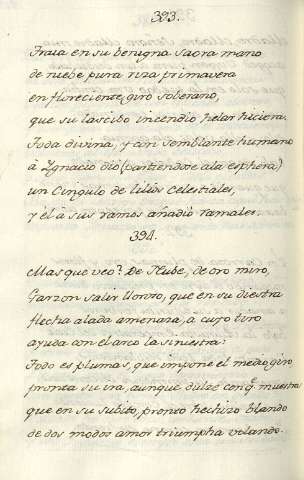 393.
Traia en su benigna sacra mano
de nieve pura riza primavera
en floreciente giro soberano,
que su lascibo incendio helar hiciera.
Toda divina, y con semblante humano
à Ygnacio dió (partiendose ala esphera)
un Cingulo de lilios celestiales,
y èl à sus ramos añadió ramales.
394.
Mas que veo? De Nube, de oro miro,
Garzon salir que en su diestra
flecha alada amenaza, a cuyo tiro
ayuda con el arco la siniestra:
Todo es plumas, que impone el medio giro
pronta su ira, aunque dulze con q.e muestra
que en su subito, pronto hechizo blando
de dos modos amor triumpha volando.